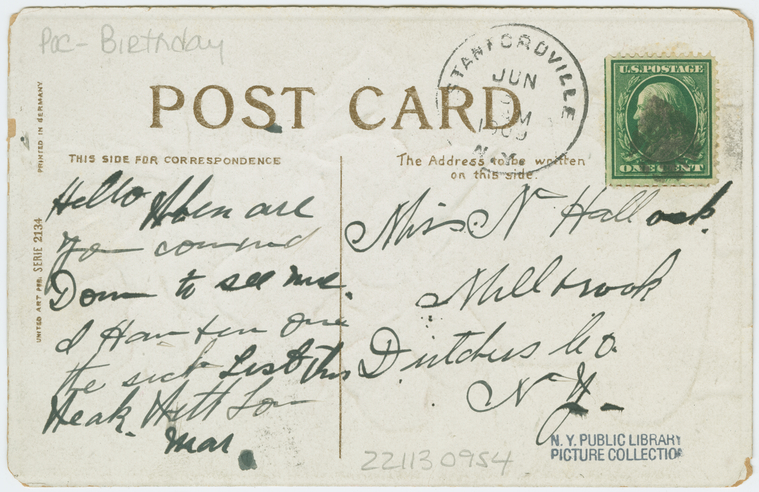 Pac- Birthday
STANFORDVILLE
JUN
M
1909
N.Y.
U.S. POSTAGE
ONE CENT
POST CARD
PRINTED IN GERMANY
UNITED ART PUB. SERIE 2134
THIS SIDE FOR CORRESPONDENCE
The Address to be written
on this side.
Hello When are
You comund
Down to see me.
I Hav ben one
the sick List this
Weak. Witt Lov
Mar
Miss N Hallock.
Millbrook
Dutchess Co.
N.Y.
221130954
N.Y. PUBLIC LIBRARY
PICTURE COLLECTION